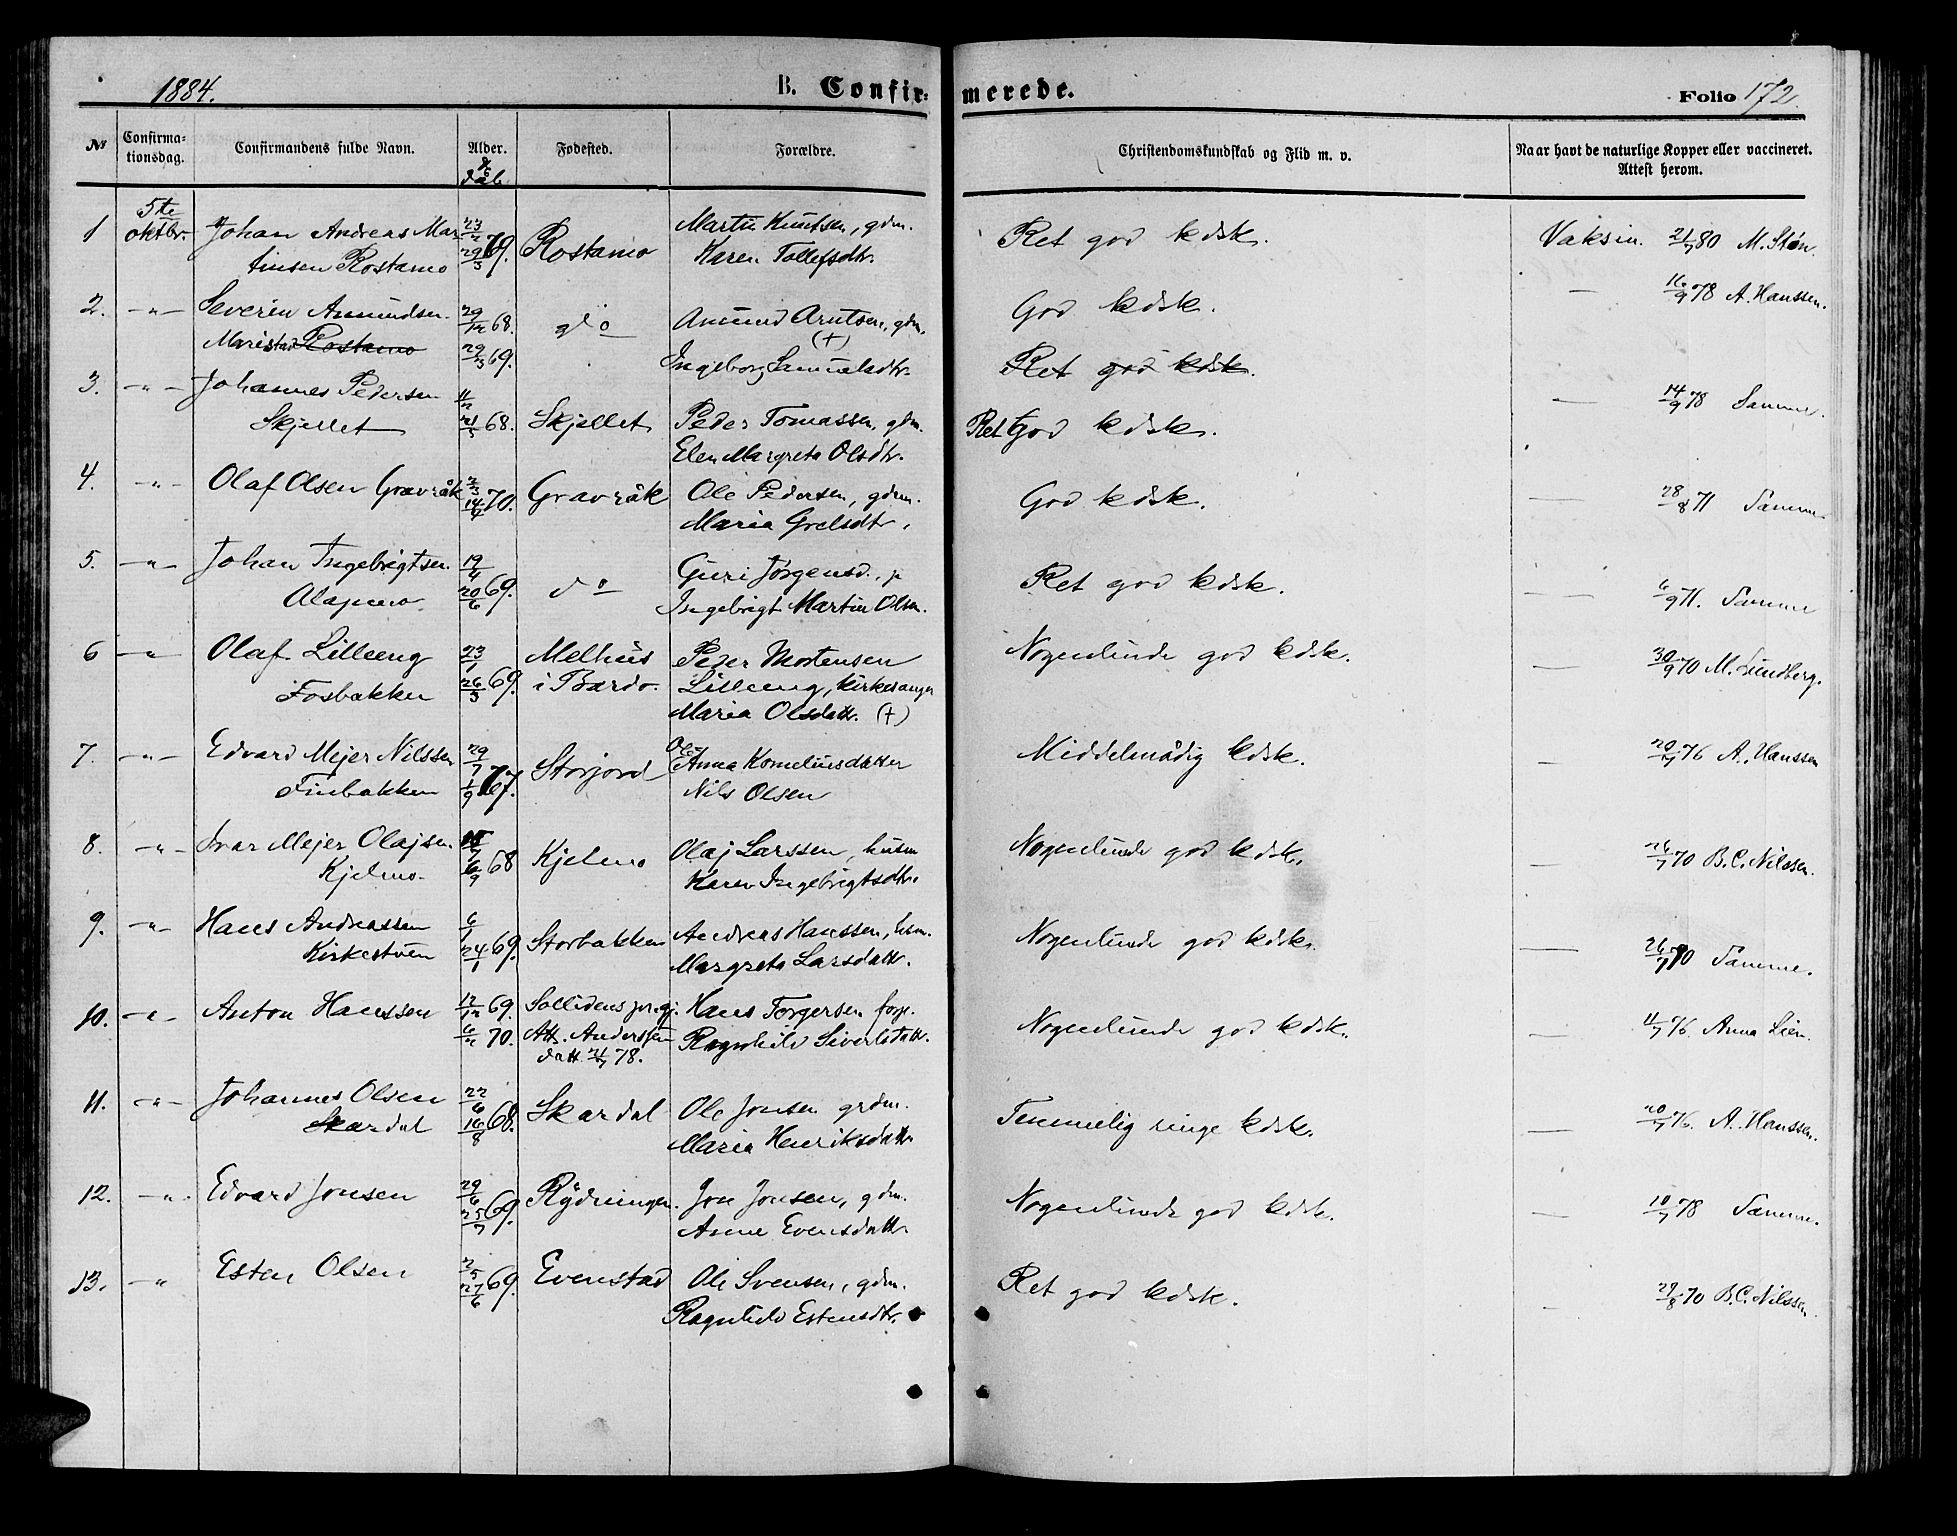 1884. B. Confirmerede. Folio 172.
№ Confirmationsdag. Confirmandens fulde Navn. Alder. & dåb Fødested. Forældre. Christendomskundskab og Flid m. v. Naar havt de naturlige Kopper eller vaccineret. Attest herom.
1 5te oktbr. Johan Andreas Mar 23/2 69. Rostamo Martin Knutsen, gdm. Ret god kdsk. Vaksin. 21/7 80 M. Støn.
tinsen Rostamo 29/3 Karen Tollefsdtr.
2. -"- Severin Amundsen 29/12 68. do Amund Arntsen, gdm. God kdsk. — 16/9 78 A. Hanssen.
Maristad Rostamo 29/3 69. (+) Ingeborg Samuelsdtr. Ret god kdsk.
3. -"- Johannes Pedersen 11/2 14/9 78 Samme.
Skjellet 21/5 68. Skjellet Peder Tomassen, gdm. Ret God kdsk. —
Elen Margreta Olsdtr.
4. -"- Olaf Olsen Gravråk 2/3 70. Gravråk Ole Pedersen, gdm. God kdsk. 28/8 71 Samme
14/4 Maria Grelsdtr.
5. -"- Johan Ingebrigtsen 19/4 69. do Guri Jørgensd., p Ret god kdsk. — 6/9 71. Samme
20/6 Ingebrigt Martin Olsen.
6 -"- Olaf Lilleeng 23/1 Melhus Peder Mortensen Nogenlunde god kdsk. — 30/9 70 M. Lundberg.
Fosbakken 26/3 69. i Bardo. Lilleeng, kirkesanger
Maria Olsdatr. (+)
7. -"- Edvard Mejer Nilssen 29/7 67. Storjord Anna Korneliusdatter Middelmådig kdsk. — 20/7 76 A. Hanssen
Finbakken 1/9 Nils Olsen
8. -"- Ivar Mejer Olajsen 68 Kjelmo Olaj Larssen, husm Nogenlunde god kdsk. — 26/7 70 B.C. Nilssen.
Kjelmo. 6/9 Karen Ingebrigtsdtr.
9. -"- Hans Andreassen 6/1 69. Storbakken Andreas Hanssen, hsm. Nogenlunde god kdsk. — 26/7 70 Samme.
Kirkestuen 24/1 Margreta Larsdatr.
10. -"- Anton Hanssen 12/12 69. Hans Torgersen Nogenlunde god kdsk. — 11/7 76. Anna Lien.
6/2 70. Att. Anderssen Ragnhild Sivertsdatr.
datt. 21/7 78.
11. -"- Johannes Olsen 22/6 68. Skardal Ole Jonsen grdm. Temmelig ringe kdsk. — 20/7 76. A. Hanssen.
Skardal 16/8 Maria Henriksdatr.
12. -"- Edvard Jonsen 29/6 69. Rydningen. Jon Jonsen, gdm. Nogenlunde god kdsk. — 10/7 78 Samme.
25/7 Anne Evensdatr.
13. -"- Esten Olsen 2/5 69. Evenstad Ole Svensen, gdm. Ret god kdsk. — 29/8 70 B.C. Nilssen
27/6 Ragnhild Estensdtr.